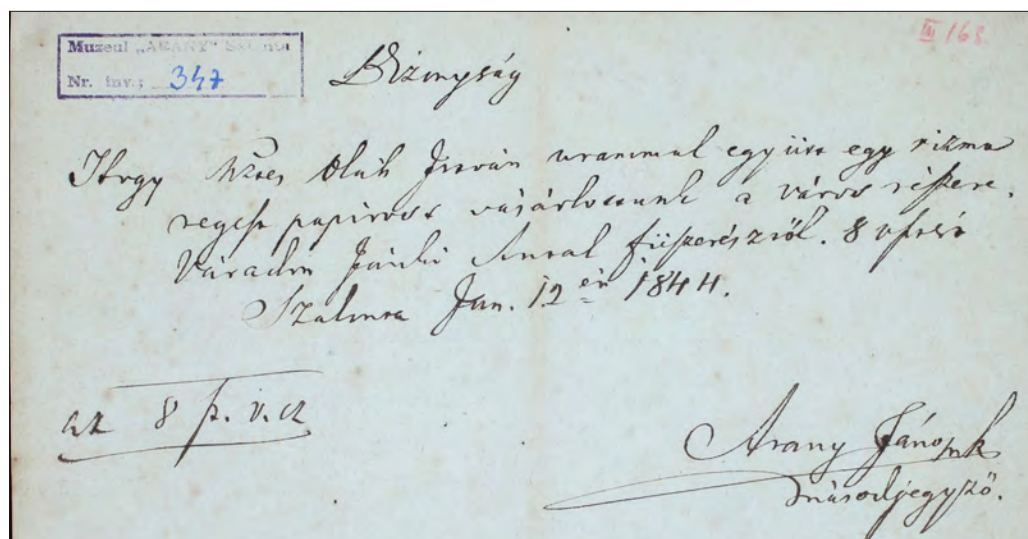 Muzeul „ARANY” Salonta
Nr. inv.: 347
III/168.
Bizonyság
Hogy Oláh István urammal együtt egy rizma
papirost vásároltunk a város részére,
Váradon Jánki Antal fűszerésztől. 8 vftért
Szalonta Jan. 12 én 1844.
az 8 f. v. cz
Arany János mk
másodjegyző.